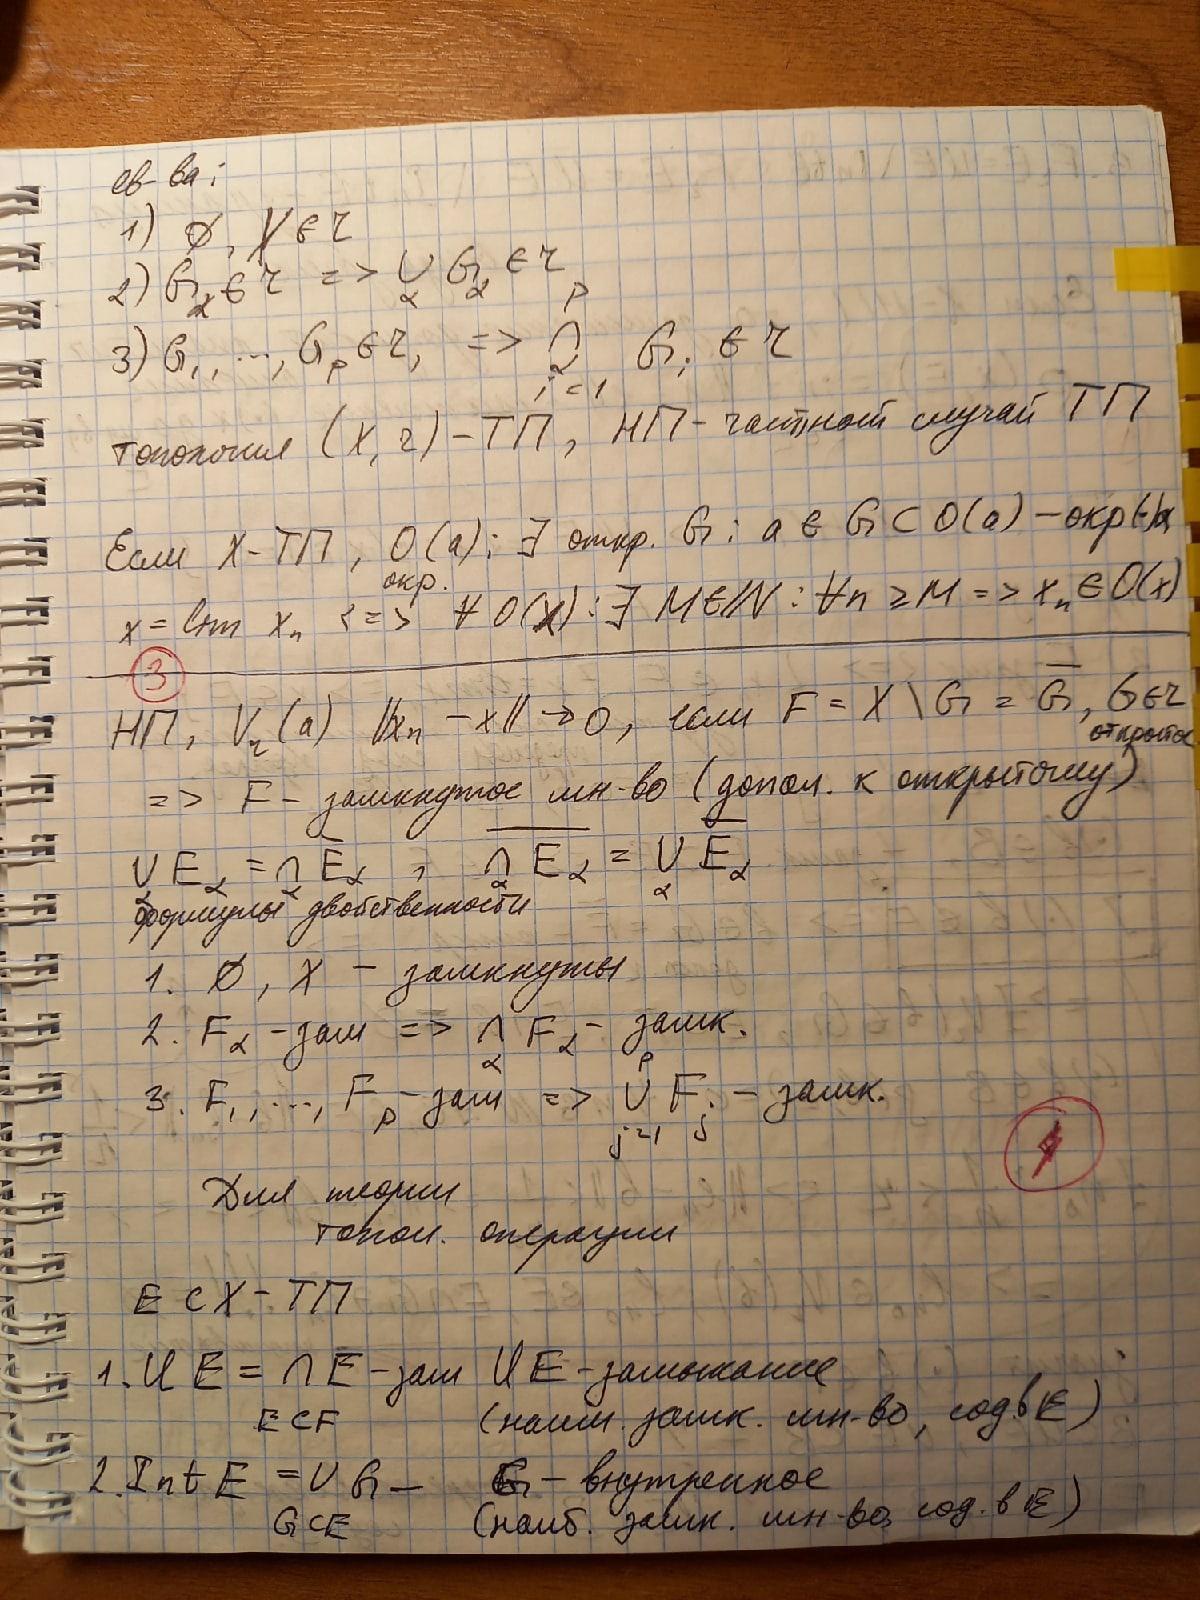 св-ва:
1) ∅, X ∈ τ
2) G_α ∈ τ => ∪_α G_α ∈ τ
3) G_1, ..., G_p ∈ τ, => ∩_{i=1}^{p} G_i ∈ τ
топология (X, τ) - ТП, НП - частный случай ТП
Если X - ТП, O(a): ∃ откр. G: a ∈ G ⊂ O(a) - окр(т)a
окр.
x = lim x_n <=> ∀ O(x): ∃ M ∈ ℕ: ∀n ≥ M => x_n ∈ O(x)
3
НП, V_r(a) ||x_n - x|| → 0, если F = X \ G = G̅, G ∈ τ
открытое
=> F - замкнутое мн-во (допол. к открытому)
∪_α E_α = ∩_α E̅_α, \overline{∩_α E_α} = ∪_α E̅_α
формулы двойственности
1. ∅, X - замкнуты
2. F_α - зам => ∩_α F_α - замк.
3. F_1, ..., F_p - зам => ∪_{j=1}^{p} F_j - замк.
Для теории
топол. операции
E ⊂ X - ТП
1. Cl E = ∩ E - зам Cl E - замыкание
E ⊂ F (наим. замк. мн-во, сод в E)
2. Int E = ∪ G - G - внутреннее
G ⊂ E (наиб. замк. мн-во, сод. в E)